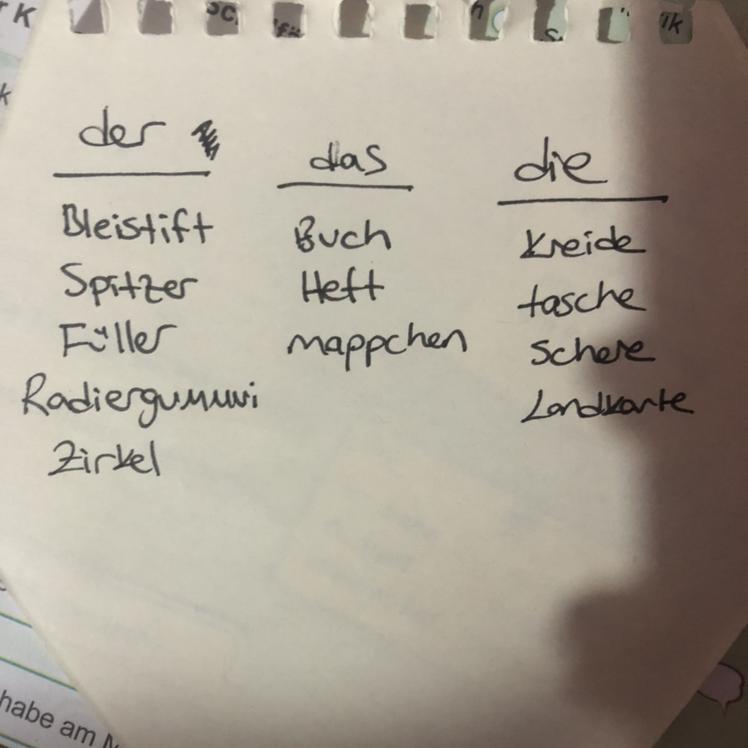 der
Bleistift
Spitzer
Füller
Radiergummi
Zirkel
das
Buch
Heft
mappchen
die
Kreide
tasche
Schere
Landkarte
habe am